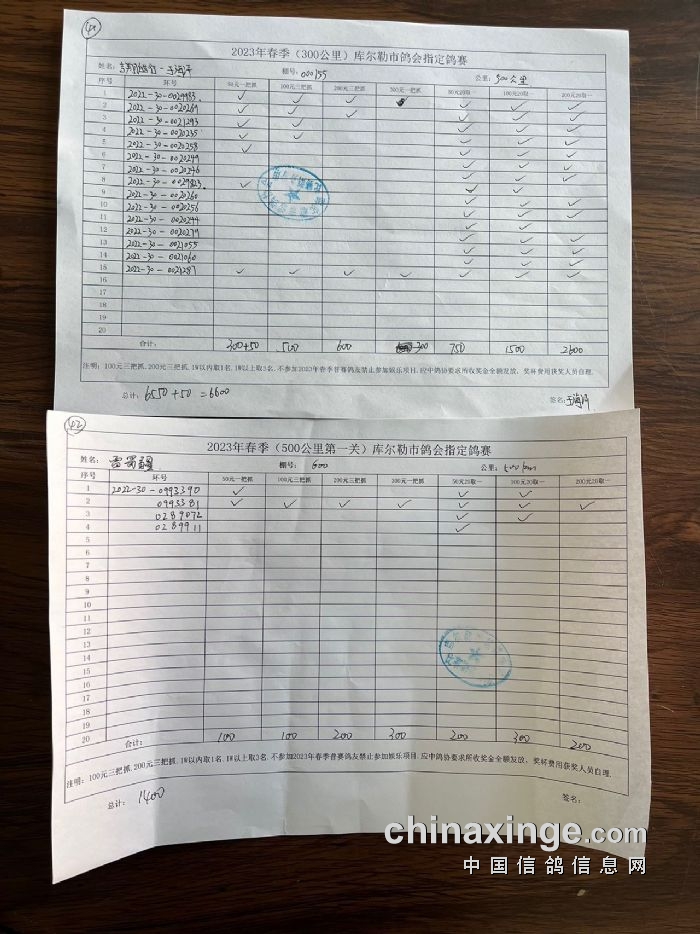 2023年春季（300公里）库尔勒市鸽会指定鸽赛
姓名： 棚号：000155 公里：300公里
序号 环号 50元一把抓 100元三把抓 200元三把抓 300元一把抓 50元20取一 100元20取一 200元20取一
1 2022-30-0029985 ✓ ✓ ✓ ✓ ✓ ✓
2 2022-30-0020269 ✓ ✓ ✓ ✓ ✓ ✓
3 2022-30-0021293 ✓ ✓ ✓ ✓ ✓ ✓
4 2022-30-0020235 ✓ ✓ ✓ ✓ ✓
5 2022-30-0020258 ✓ ✓ ✓ ✓
6 2022-30-0020249 ✓ ✓ ✓
7 2022-30-0020246 ✓ ✓ ✓
8 2022-30-0029823 ✓ ✓ ✓ ✓
9 2022-30-0020260 ✓ ✓
10 2022-30-0020256 ✓ ✓ ✓
11 2022-30-0020244 ✓ ✓ ✓
12 2022-30-0020279 ✓ ✓
13 2022-30-0021055 ✓ ✓ ✓
14 2022-30-0021060 ✓ ✓ ✓
15 2022-30-0021287 ✓ ✓ ✓ ✓ ✓ ✓ ✓
16
17
18
19
20
合计： 300+50 500 600 300 750 1500 2600
注明：100元三把抓.200元三把抓.1W以内取1名.1W以上取3名.不参加2023年春季普赛鸽友禁止参加娱乐项目.应中鸽协要求所收奖金全额发放，奖杯费用获奖人员自理.
总计：6550+50=6600 签名：
42
2023年春季（500公里第一关）库尔勒市鸽会指定鸽赛
姓名： 棚号：600 公里：500
序号 环号 50元一把抓 100元三把抓 200元三把抓 300元一把抓 50元20取一 100元20取一 200元20取一
1 2022-30-0993390 ✓ ✓ ✓
2 0993381 ✓ ✓ ✓ ✓ ✓ ✓ ✓
3 0289072 ✓ ✓
4 0289911 ✓
5
6
7
8
9
10
11
12
13
14
15
16
17
18
19
20
合计： 100 100 200 300 200 300 200
注明：100元三把抓.200元三把抓.1W以内取1名.1W以上取3名.不参加2023年春季普赛鸽友禁止参加娱乐项目.应中鸽协要求所收奖金全额发放，奖杯费用获奖人员自理.
总计：1400 签名：
chinaxinge.com
中国信鸽信息网